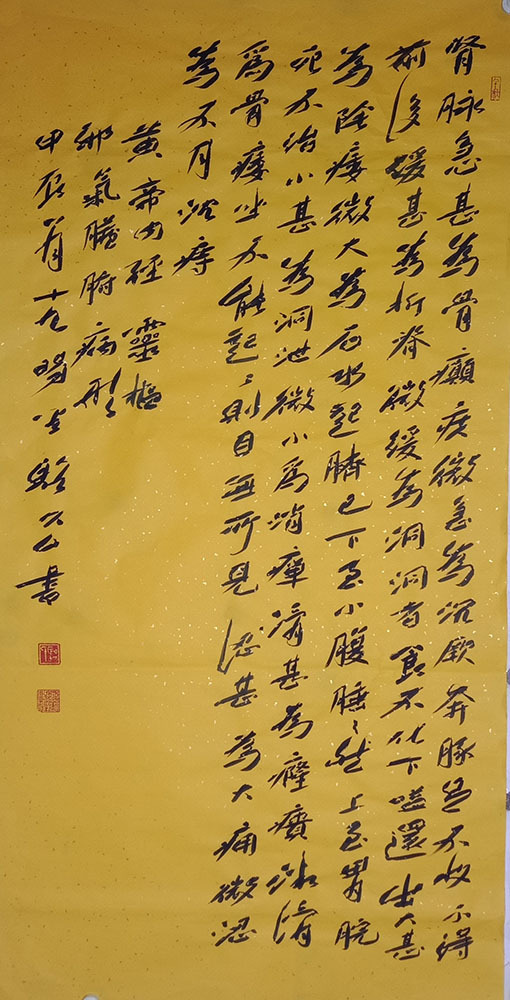 腎脉急甚為骨癲疾微急為沉厥奔豚足不收不得
前後緩甚為折脊微緩為洞洞者食不化下嗌還出大甚
為陰痿微大為石水起臍已下至小腹腄〻然上至胃脘
死不治小甚為洞泄微小為消癉滑甚為癃㿉微滑
為骨痿坐不能起〻則目無所見澀甚為大痈微澀
為不月沉痔
黄帝内經靈樞
邪氣臟腑病形
甲辰育十九
書